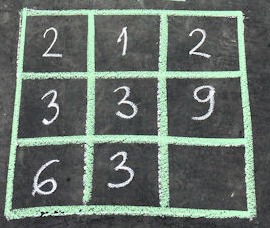 2 1 2
3 3 9
6 3